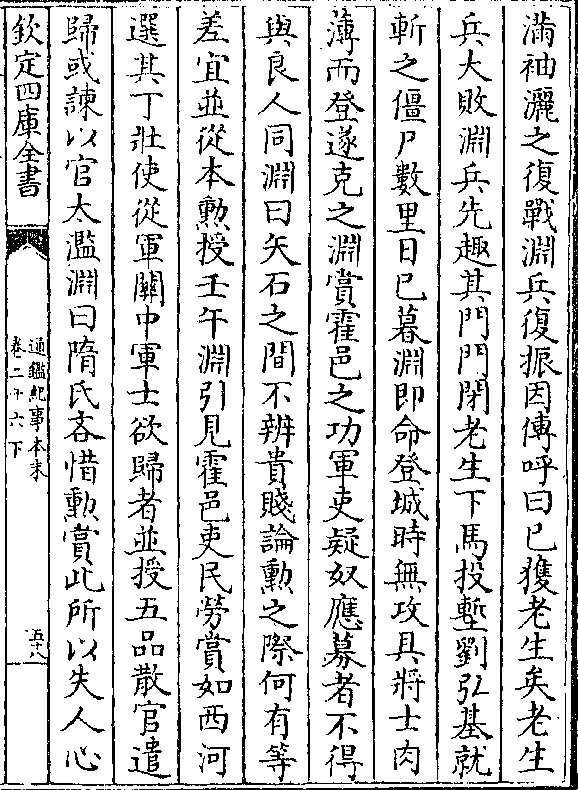 滿袖灑之復戰淵兵復振因傳呼曰已獲老生矣老生
兵大敗淵兵先趣其門門閉老生下馬投塹劉弘基就
斬之僵尸數里日已暮淵即命登城時無攻具將士肉
薄而登遂克之淵賞霍邑之功軍吏疑奴應募者不得
與良人同淵曰矢石之間不辨貴賤論勲之際何有等
差宜並從本勲授壬午淵引見霍邑吏民勞賞如西河
選其丁壯使從軍關中軍士欲歸者並授五品散官遣
歸或諫以官太濫淵曰隋氏吝惜勲賞此所以失人心
欽定四庫全書
通鑑紀事本末
卷二十六下
五十八